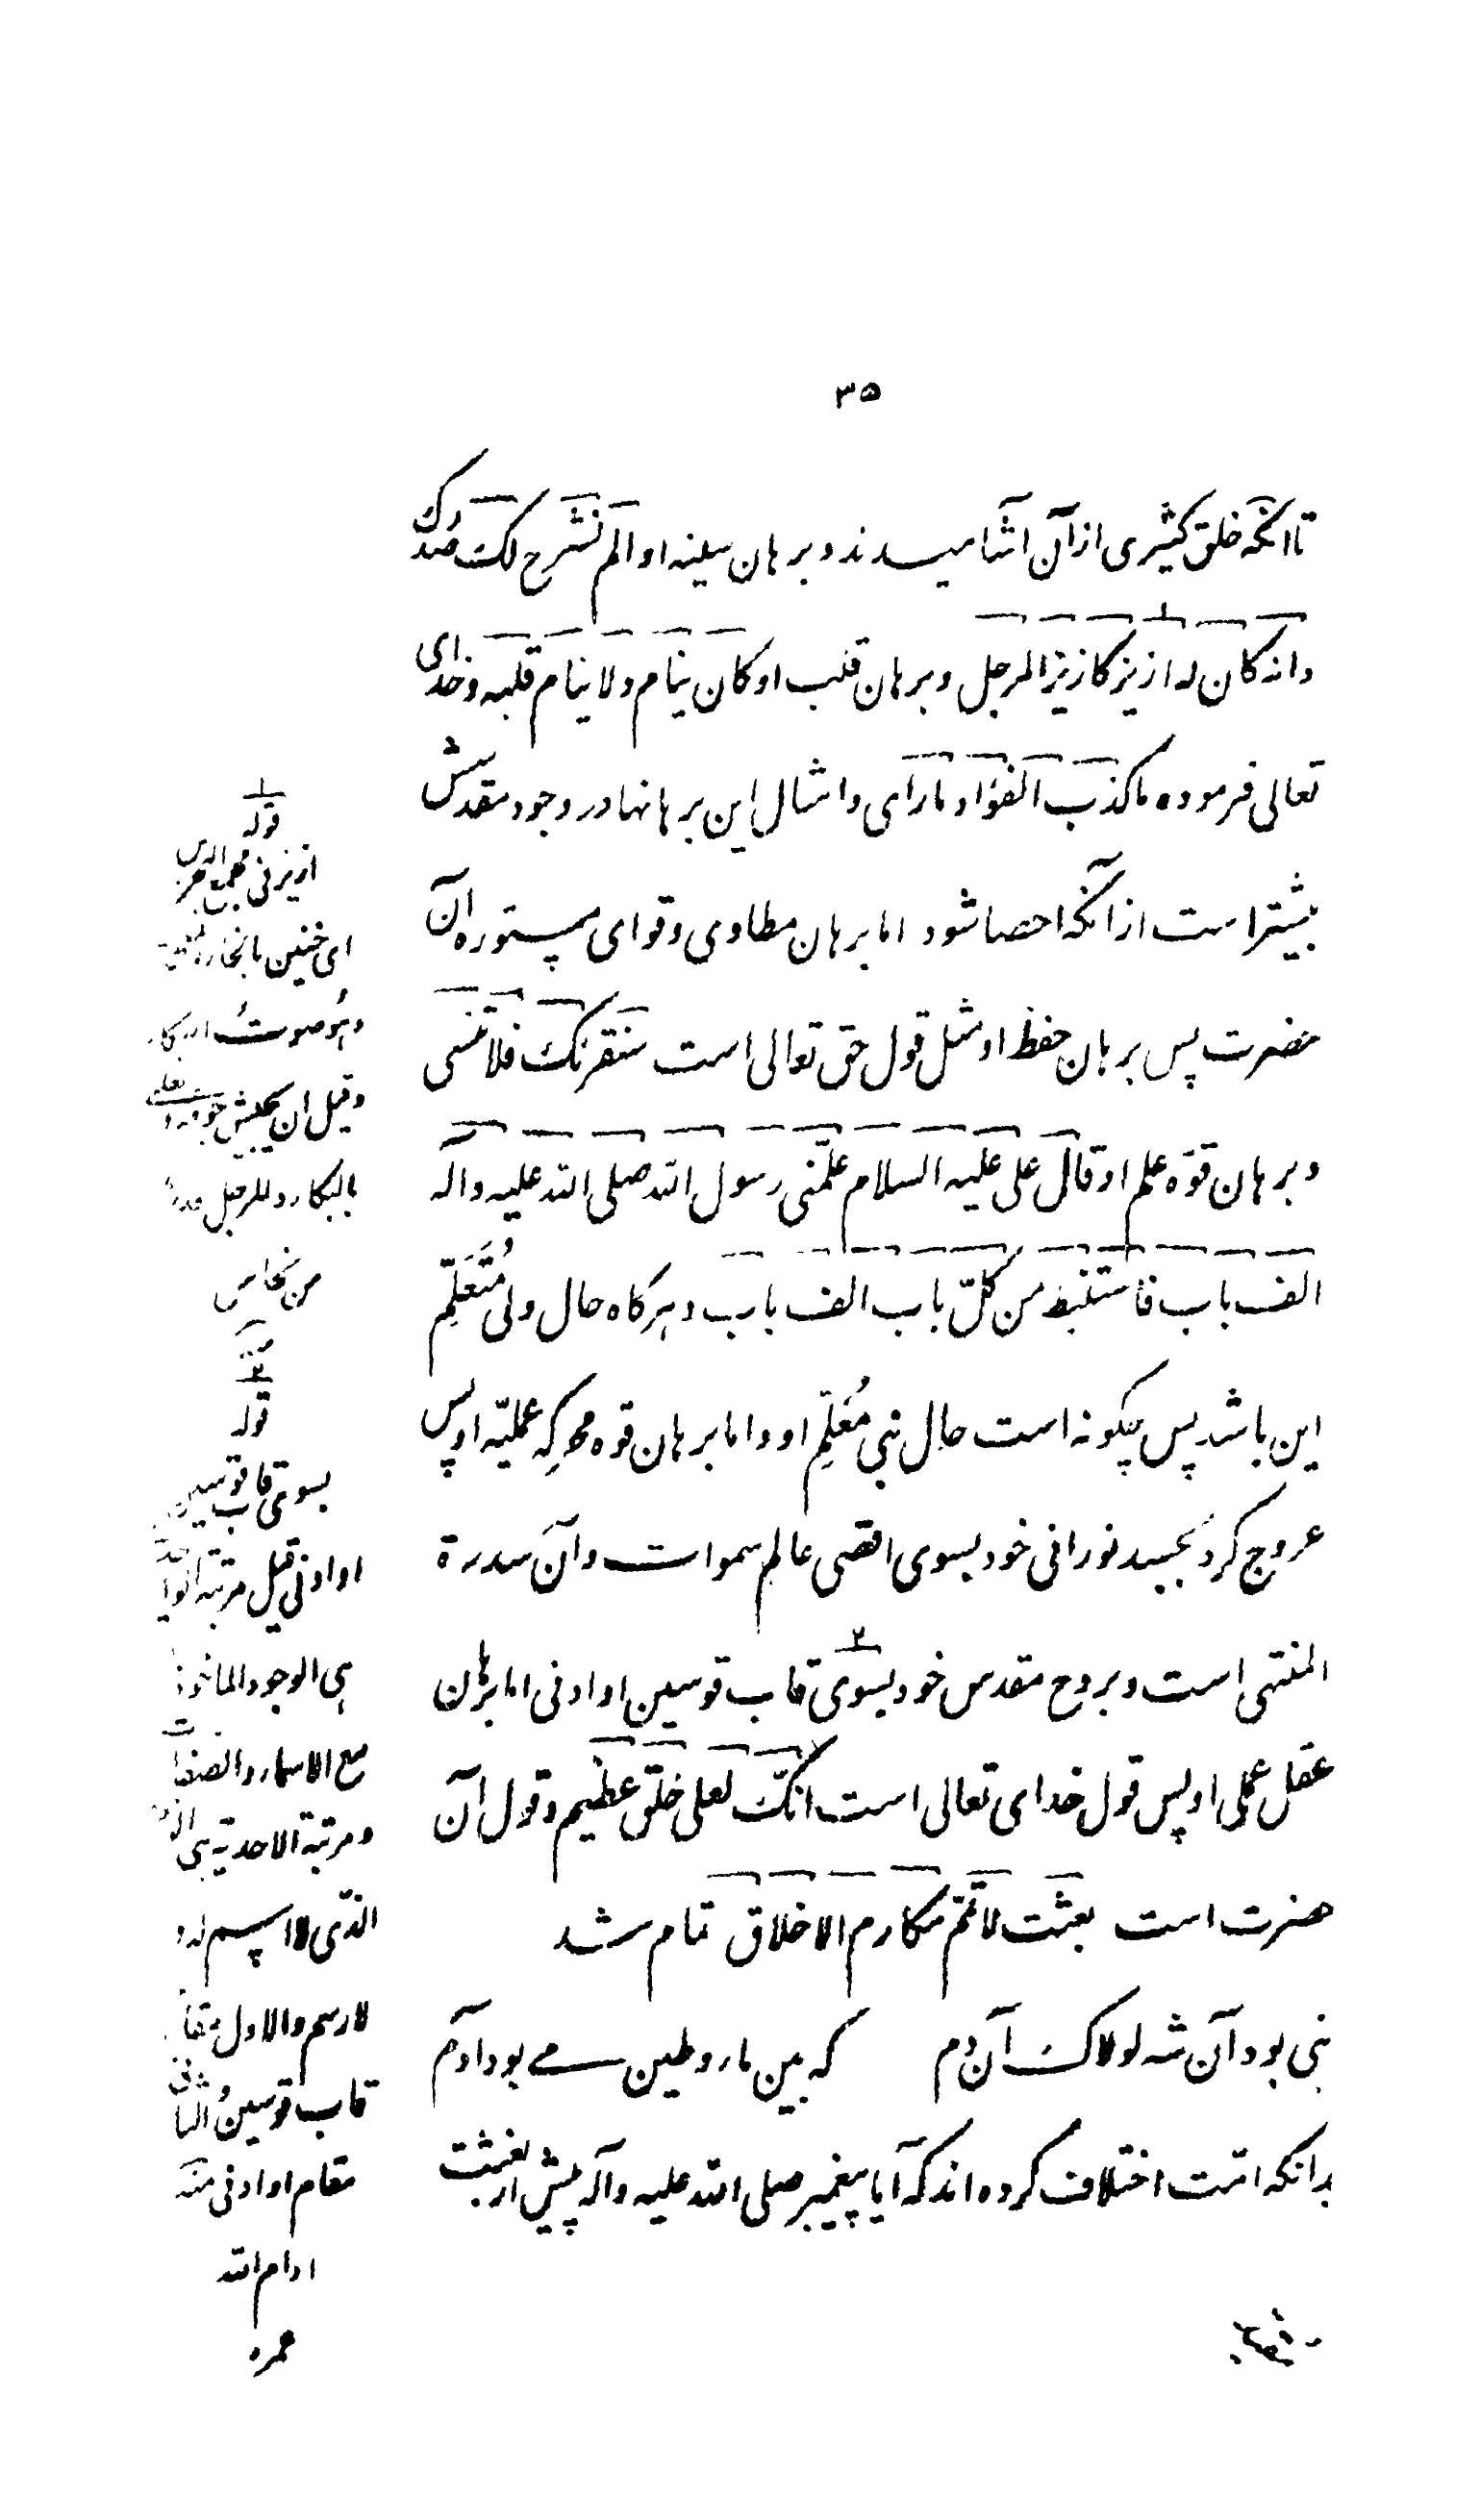 ۳۵
تا آنکه خلق کثیری از آن آشامیدند و برهان سینه او الم نشرح لک صدرک
و انه کان له ازیز کازیز المرجل و برهان قلب او کان ینام و لا ینام قلبه و خدای
تعالی فرموده ما کذب الفؤاد ما رآی و امثال این برهانها در وجود مقدسش
بیشتر است از آنکه احصا شود اما برهان مطاوی و قوای مستوره آن
حضرت پس برهان حفظ او مثل قول حق تعالی است سنقرئک فلا تنسی
و برهان قوّه علم او قال علی علیه السلام علّمنی رسول الله صلی الله علیه و آله
الف باب فاستنبط من کلّ باب الف باب و هرکاه حال ولی مُتَعَلِّم
این باشد پس چکونه است حال نبی مُعَلِّم او و اما برهان قوه محرکه عملیّه او پس
عروج کرد بجسد نورانی خود بسوی اقصی عالم سموات و آن سدرة
المنتهی است و بروح مقدس خود بسوی ۲ قاب قوسین او ادنی اما برهان
عقل عملی او پس قول خدای تعالی است انّک لعلی خلق عظیم و قول آن
حضرت است بعثت لاتمّم مکارم الاخلاق تمام شد
نبی بود آن شه لولاک آن دم که بین ماء و طین می بود آدم
بدانکه امّت اختلاف کرده اند که آیا پیغمبر صلی الله علیه و آله پیش از بعثت
۱
قوله
ازیز فی مجمع البحرین
ای خنین بالخاء المعجمة
و هُو صوتُ البکاء
و قیل ان یجیش جوفه و یغلی
بالبکاء و المرجل قدر
من نحاس
۲
قوله
بسوی قاب قوسین
او ادنی قیل مرتبة الواحدیة
هی الوجود الماخوذ
مع الاسماء و الصفات
و مرتبة الاحدیة هی
الذی لا اسم له و
لا رسم و الاول مقام
قاب قوسین و الثانی
مقام او ادنی منه
ادام الله
عمره